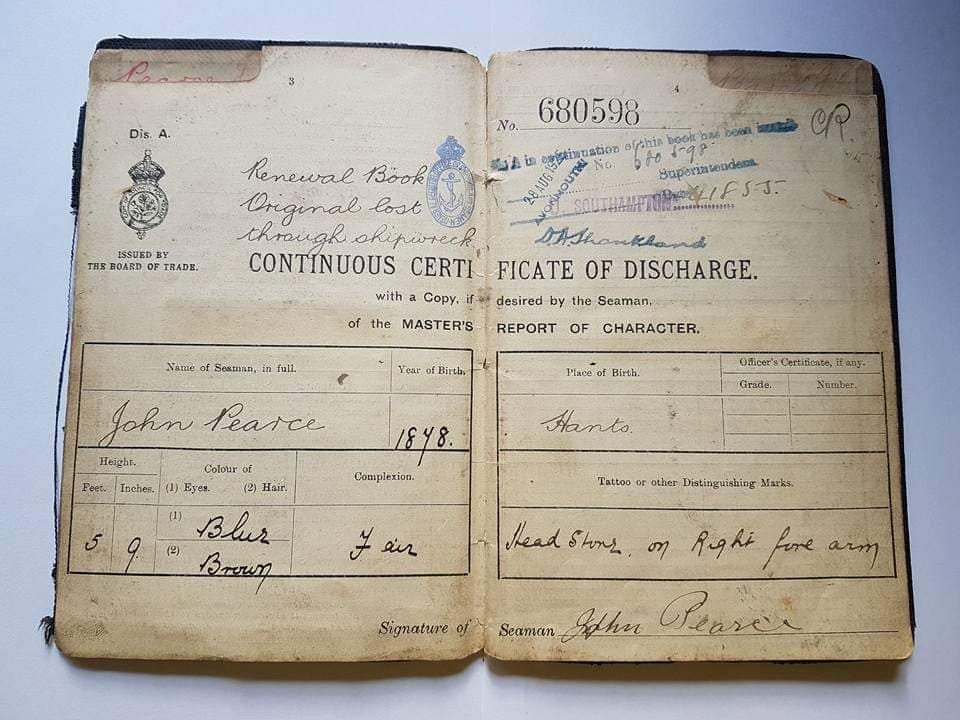 Pearce J
3
Dis. A.
Renewal Book
Original lost
through shipwreck
ISSUED BY
THE BOARD OF TRADE.
4
No. 680598
CR
A in continuation of this book has been
No. 680598
Superintendent
28 AUG
SOUTHAMPTON 41855.
CONTINUOUS CERTIFICATE OF DISCHARGE.
with a Copy, if desired by the Seaman,
of the MASTER'S REPORT OF CHARACTER.
Name of Seaman, in full.
Year of Birth.
John Pearce
1878.
Height.
Feet. Inches.
Colour of
(1) Eyes. (2) Hair.
Complexion.
5 9
(1) Blue
(2) Brown
Fair
Place of Birth.
Officer's Certificate, if any.
Grade. Number.
Hants.
Tattoo or other Distinguishing Marks.
Head Stone, on Right fore arm
Signature of Seaman John Pearce